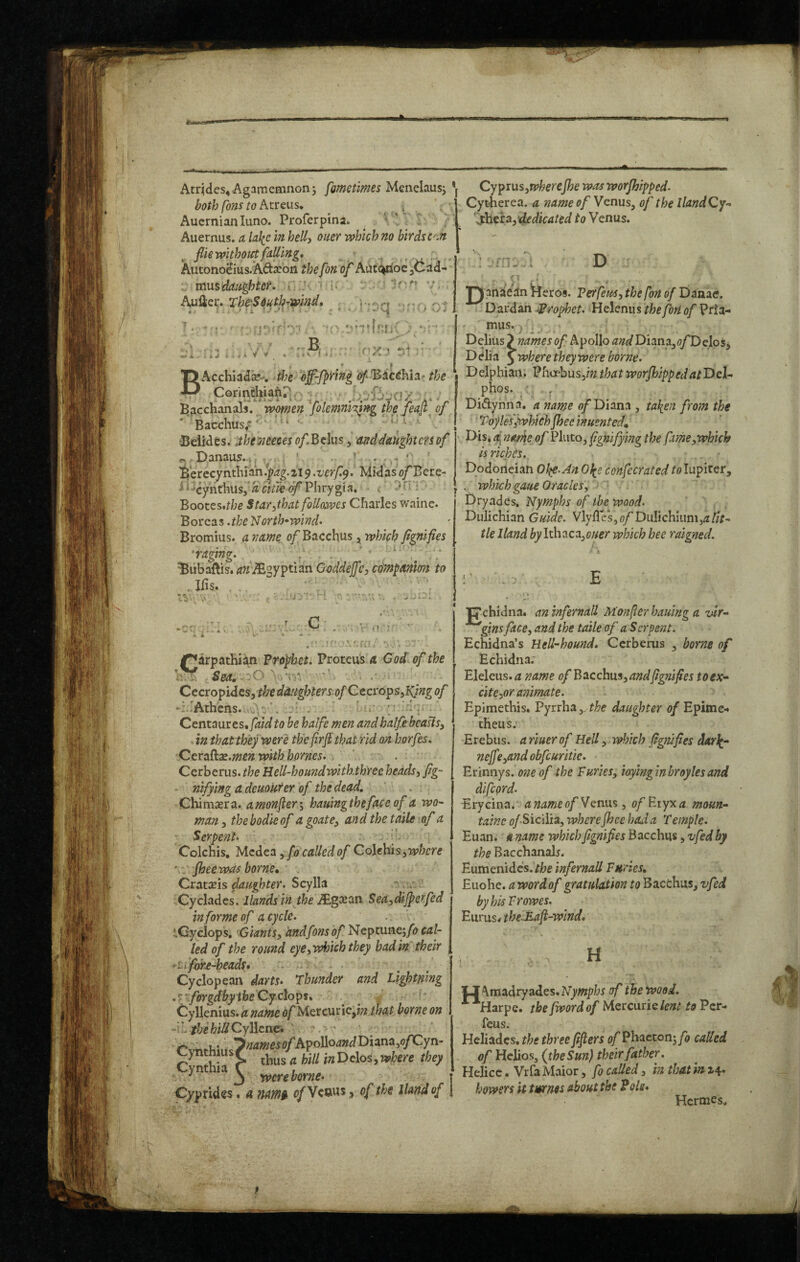 Atrides, Agamemnon; ſometimes Menelaus;
both ſons to Atreus.
Auernian Iuno. Proſerpina.
Auernus. a lake in hell, ouer which no birds c n
flie without falling.
Autonoeius. Actæon the ſon of Autonoe, Cad-
mus daughter.
Auſter. The South-wind.
B
BAcchiadæ. the off-ſpring of Bacchia the
Corinthian.
Bacchanals. women ſolemnizing the feaſt of
Bacchus.
Belides. the neeces of Belus, and daughters of
Danaus.
Berecynthian. pag. 219. verſ. 9. Midas of Bere-
cynthus, a citie of Phrygia.
Bootes. the Star, that followes Charles waine.
Boreas. the North-wind.
Bromius. a name of Bacchus, which ſignifies
raging.
Bubaſtis. an Ægyptian Goddeſſe, companion to
Iſis.
C
CArpathian Prophet. Proteus a God of the
Sea.
Cecropides, the daughters of Cecrops, King of
Athens.
Centaures, ſaid to be halfe men and halfe beaſts,
in that they were the firſt that rid on horſes.
Ceraſtæ. men with hornes.
Cerberus. the Hell-hound with three heads, ſig-
nifying a deuourer of the dead.
Chimæra. a monſter; hauing the face of a wo-
man, the bodie of a goate, and the taile of a
Serpent.
Colchis. Medea, ſo called of Colchis, where
ſhee was borne.
Cratæis daughter. Scylla
Cyclades. Ilands in the Ægæan Sea, diſperſed
in forme of a cycle.
Cyclops. Giants, and ſons of Neptune; ſo cal-
led of the round eye, which they had in their
fore-heads.
Cyclopean darts. Thunder and Lightning
forgd by the Cyclops.
Cyllenius. a name of Mercurie, in that borne on
the hill Cyllene.
Cynthius } names of Apollo and Diana, of Cyn-
thus a hill in Delos, where they
Cynthia were borne.
Cyprides. a name of Venus, of the Iland of
Cyprus, where ſhe was worſhipped.
Cytherea. a name of Venus, of the Iland Cy-
thera, dedicated to Venus.
D
DAnaean Heros. Perſeus, the ſon of Danae.
Dardan Prophet. Helenus the ſon of Pria-
mus.
Delius } names of Apollo and Diana, of Delos,
Delia where they were borne.
Delphian. Phœbus, in that worſhipped at Del-
phos.
Dictynna. a name of Diana, taken from the
Toyles, which ſhee inuented.
Dis. a name of Pluto, ſignifying the ſame, which
is riches.
Dodoneian Oke. An Oke conſecrated to Iupiter,
which gaue Oracles.
Dryades. Nymphs of the wood.
Dulichian Guide. Vlyſſes, of Dulichium, a lit-
tle Iland by Ithaca, ouer which hee raigned.
E
EChidna. an infernall Monſter hauing a vir-
gins face, and the taile of a Serpent.
Echidna's Hell-hound. Cerberus, borne of
Echidna.
Eleleus. a name of Bacchus, and ſignifies to ex-
cite, or animate.
Epimethis. Pyrrha, the daughter of Epime-
theus.
Erebus. a riuer of Hell, which ſignifies dark-
neſſe, and obſcuritie.
Erinnys. one of the Furies, ioying in broyles and
diſcord.
Erycina. a name of Venus, of Eryx a moun-
taine of Sicilia, where ſhee had a Temple.
Euan. a name which ſignifies Bacchus, vſed by
the Bacchanals.
Eumenides. the infernall Furies.
Euohe. a word of gratulation to Bacchus, vſed
by his Frowes.
Eurus. the Eaſt-wind.
H
HAmadryades. Nymphs of the wood.
Harpe. the ſword of Mercurie lent to Per-
ſeus.
Heliades. the three ſiſters of Phaeton; ſo called
of Helios, (the Sun) their father.
Helice. Vrſa Maior, ſo called, in that in 24.
howers it turnes about the Pole.
Hermes,